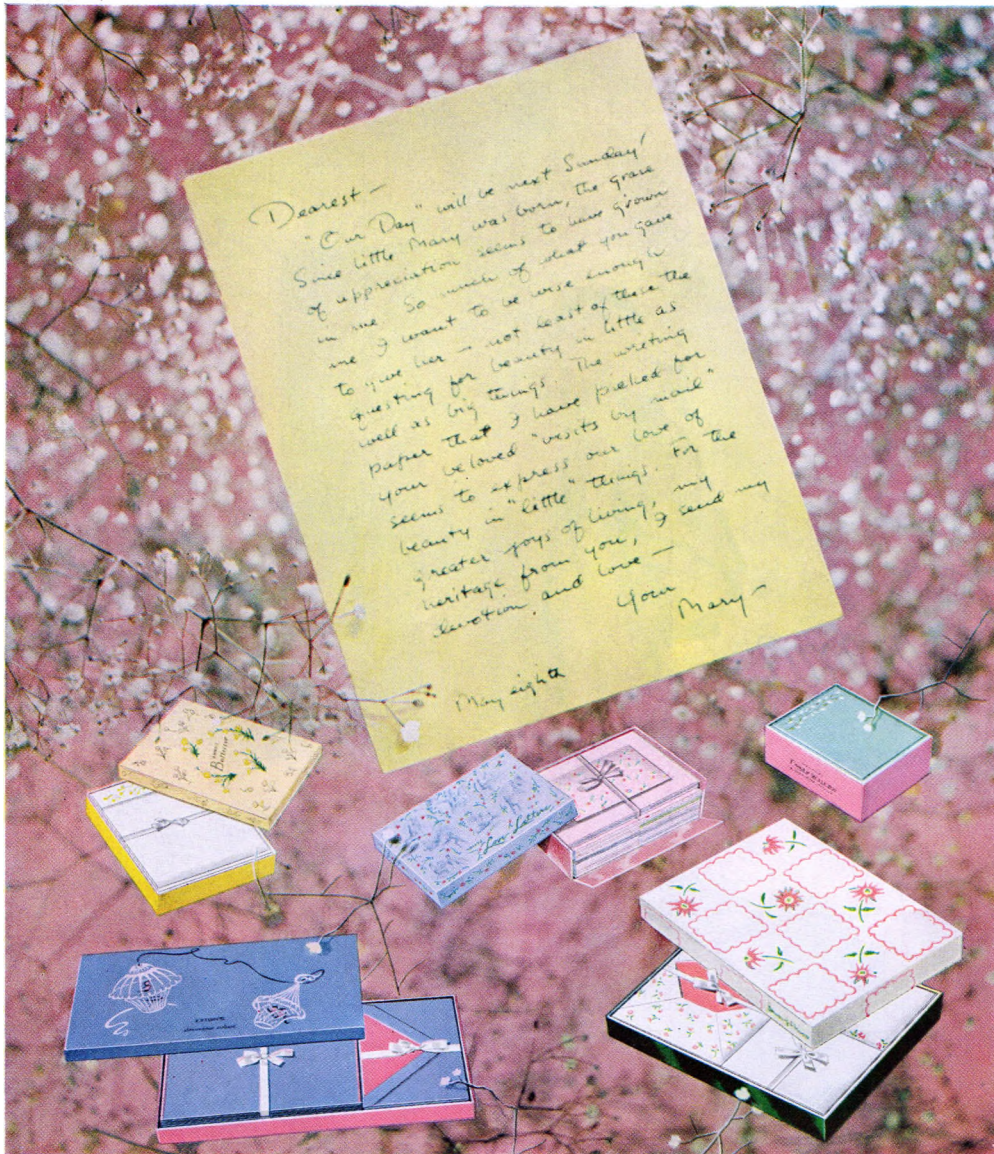 Dearest —
"Our Day" will be next Sunday!
Since little Mary was born, the grace
of appreciation seems to have grown
in me. So much of what you gave
me I want to be wise enough
to give her — not least of these the
questing for beauty in little as
well as big things. The writing
paper that I have picked for
your beloved "visits by mail"
seems to express our love of
beauty in "little" things. For the
greater joys of living, my
heritage from you, I send my
devotion and love —
Your
Mary —
May eighth
Buttercup
Love Letters